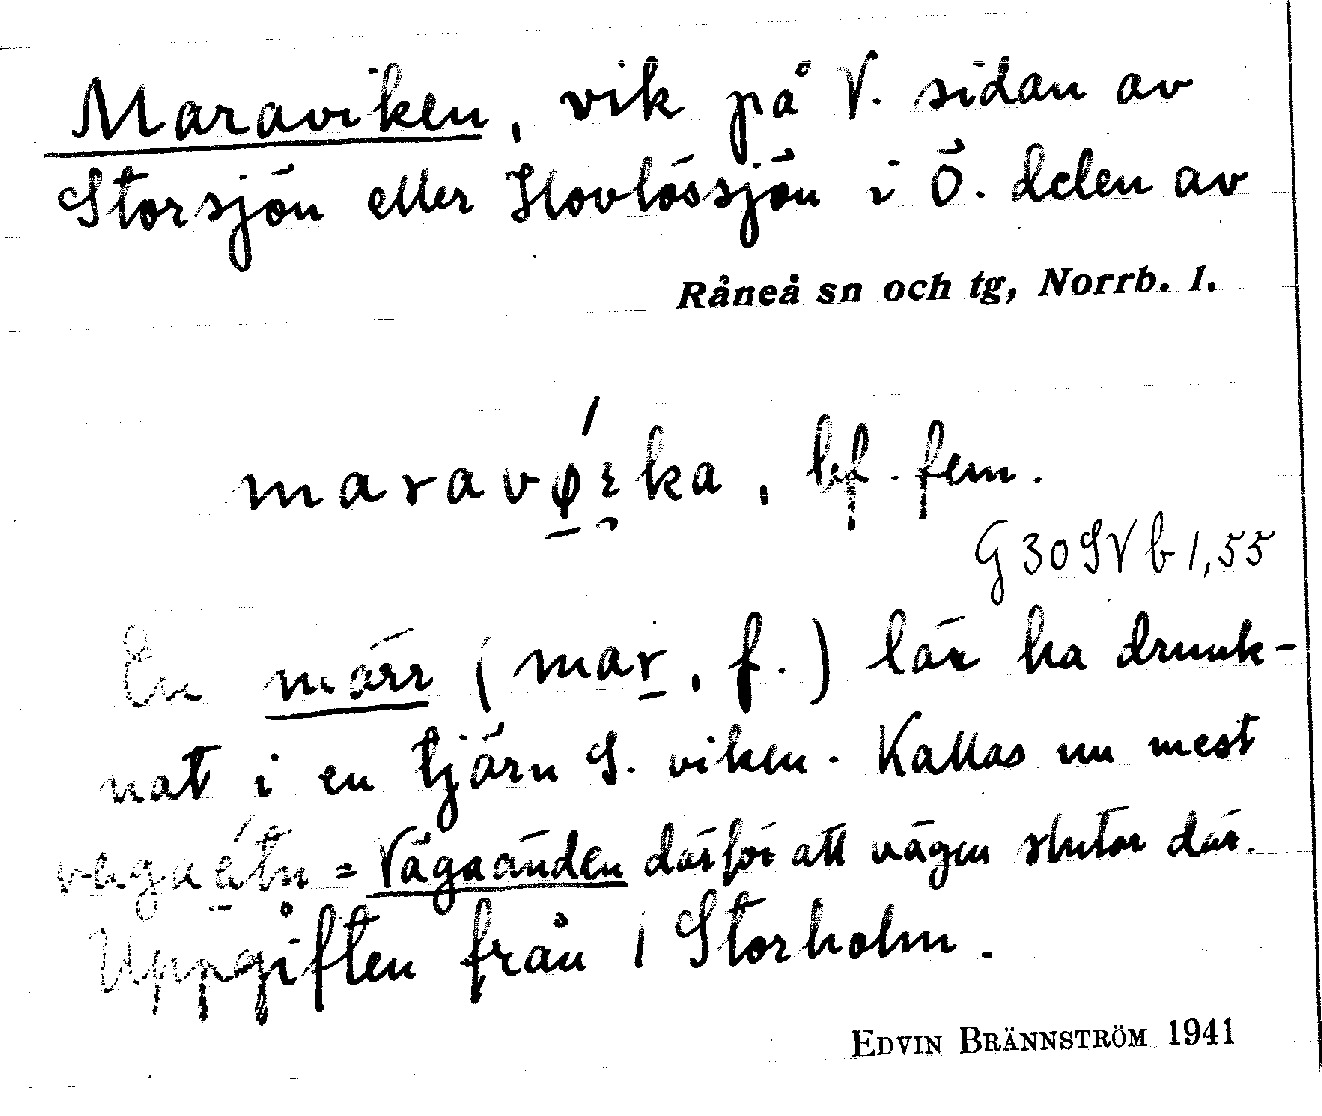 Maraviken, vik på V. sidan av
Storsjön eller Hovlössjön i Ö. delen av
Råneå sn och tg, Norrb. l.
bf. fem.
G 30 SV b 1,55
En märr (mar, f.) lär ha drunk-
nat i en tjärn S. viken. Kallas nu mest
= Vägaänden därför att vägen slutar där.
Uppgiften från 1 Storholm.
EDVIN BRÄNNSTRÖM 1941